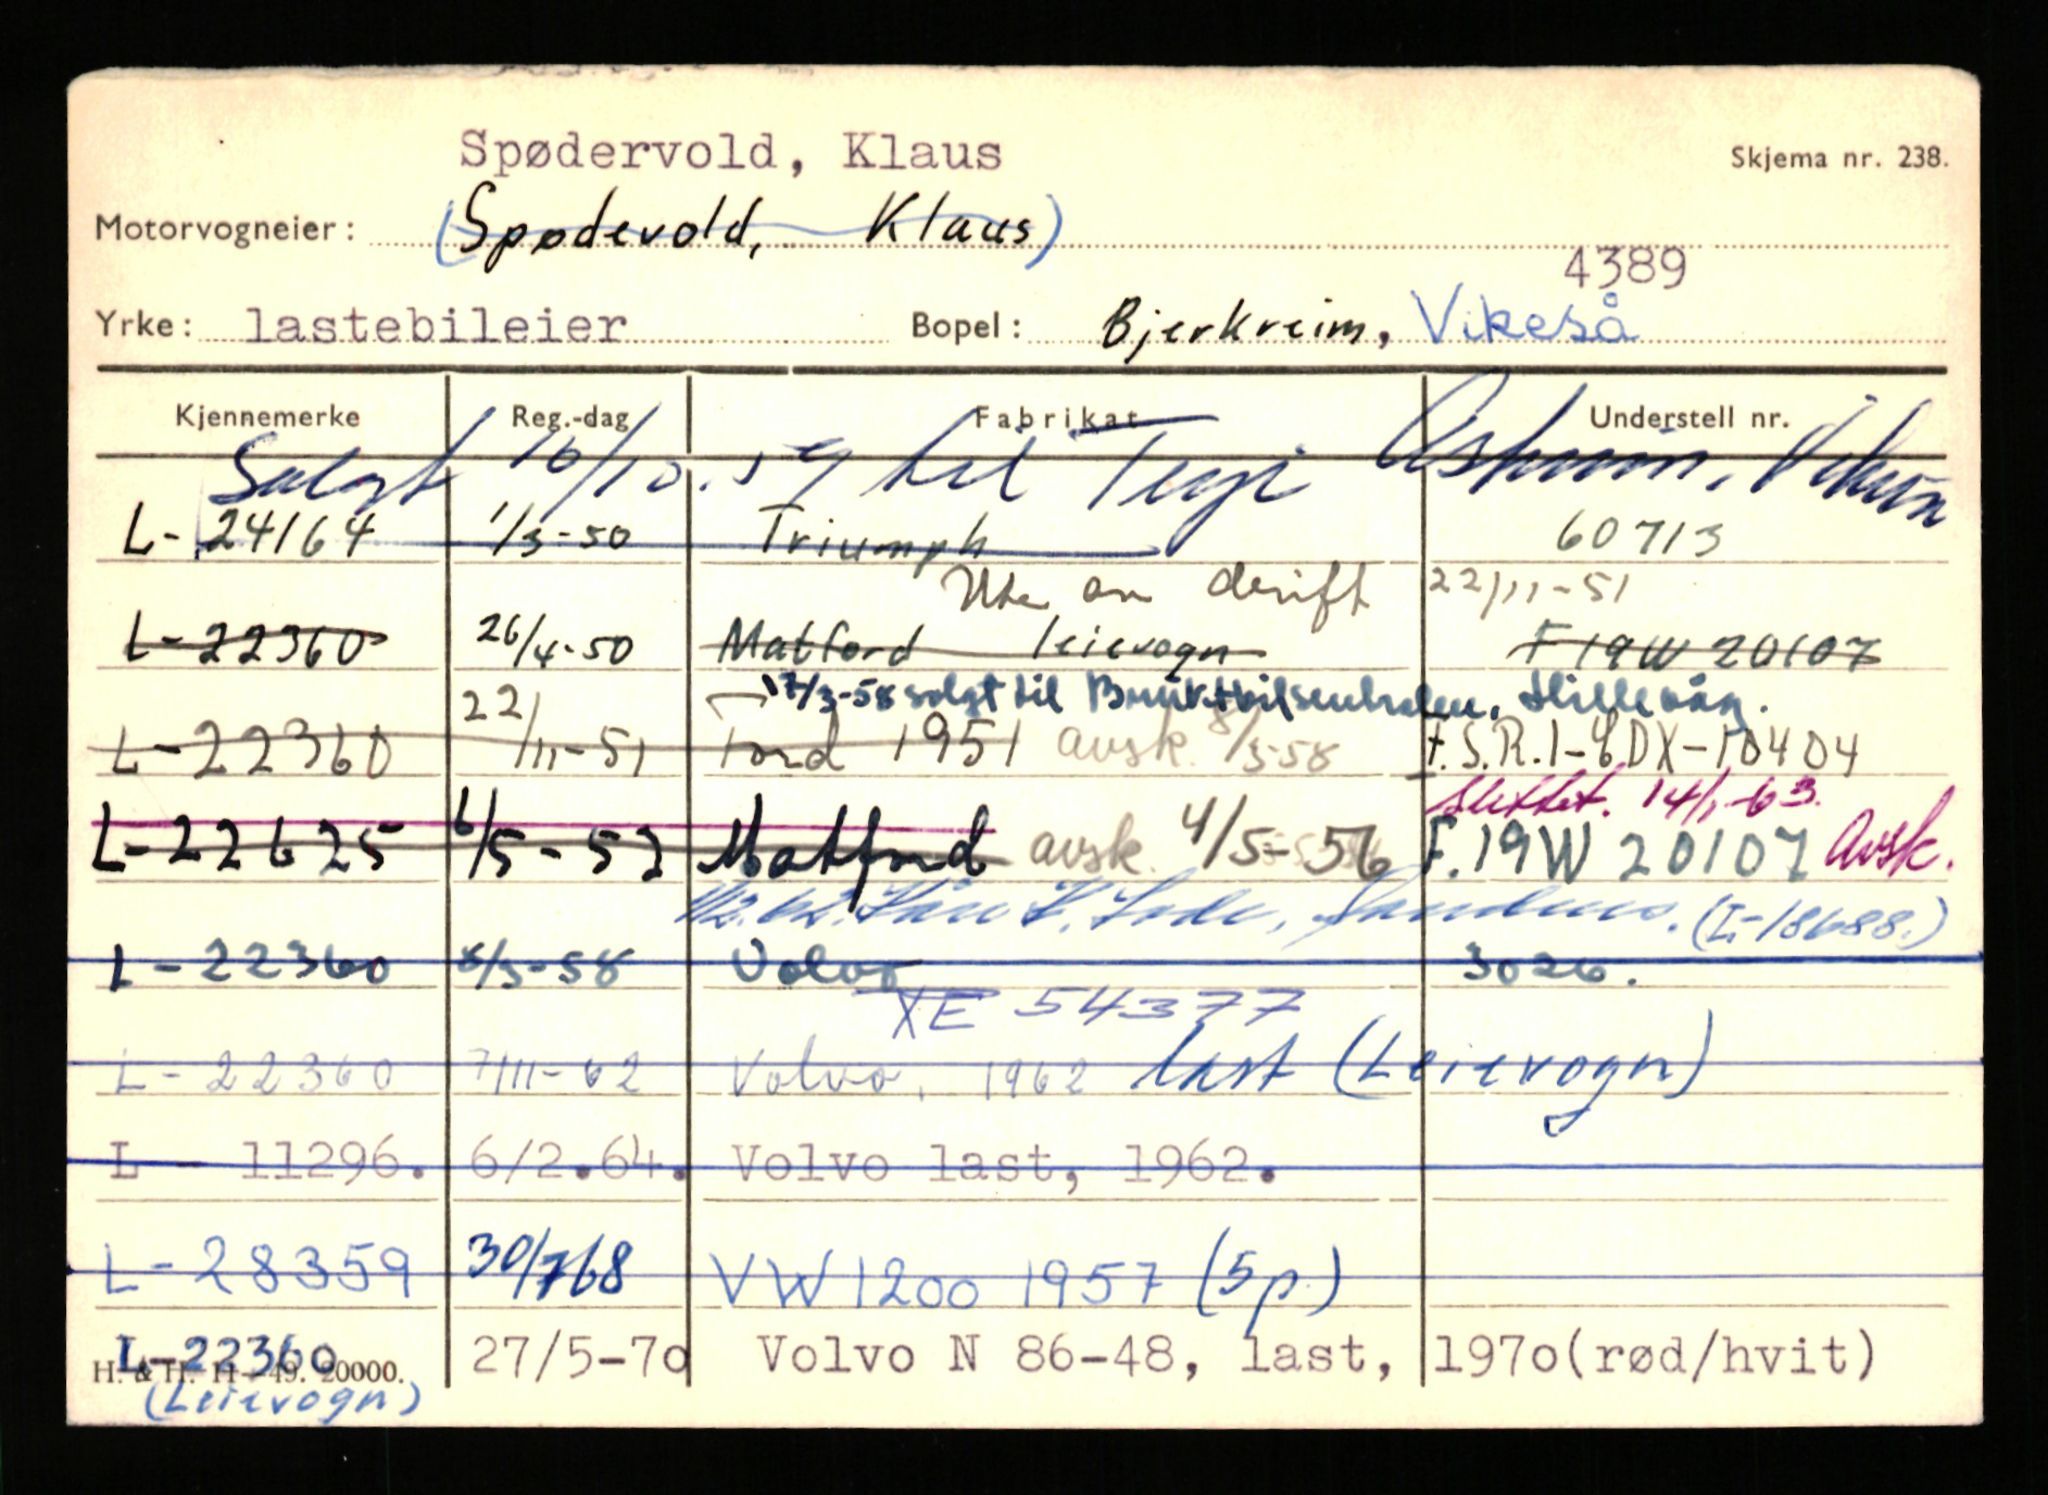 Spødervold, Klaus
Skjema nr. 238.
Motorvogneier: (Spødevold, Klaus)
4389
Yrke: lastebileier Bopel: Bjerkreim, Vikeså
Kjennemerke Reg.-dag Fabrikat Understell nr.
Solgt 16/10.59 til Terje
L-24164 1/3-50 Triumph 60713
Ute av drift 22/11-51
L-22360 26/4-50 Matford leievogn F 19W 20107
17/3-58 solgt til Bruktbilsentralen, Hillevåg.
L-22360 22/11-51 Ford 1951 avsk. 8/3-58 F.S.R.1-EDX-10404
slettet. 14/1-63.
L-22625 6/5-52 Matford avsk. 4/5-56 F.19W 20107 Avsk.
Sandnes. (L-18688.)
L-22360 8/3-58 Volvo 3026.
XE 54377
L-22360 7/11-62 Volvo, 1962 last (Leievogn)
L - 11296. 6/2.64. Volvo last, 1962.
L-28359 30/768 VW 1200 1957 (5p)
L-22360 27/5-70 Volvo N 86-48, last, 1970(rød/hvit)
H. & TH. H - 49. 20000.
(Leievogn)